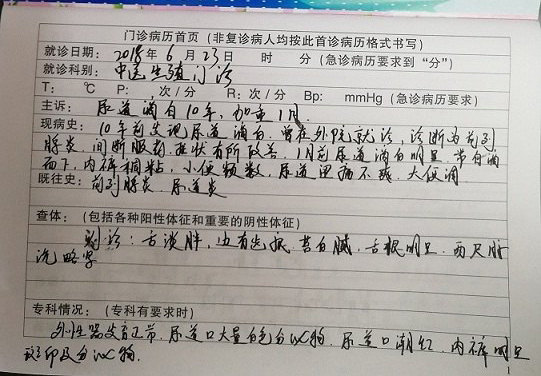 门诊病历首页（非复诊病人均按此首诊病历格式书写）
就诊日期：2018年6月23日 时 分（急诊病历要求到“分”）
就诊科别：中医生殖门诊
T： ℃ P： 次/分 R：次/分 Bp： mmHg（急诊病历要求）
主诉：尿道滴白10年，加重1月
现病史：10年前发现尿道滴白，曾在外院就诊，诊断为前列
腺炎，间断服药，症状有所改善，1月前尿道滴白明显，常自滴
而下，内裤稠粘，小便频数，尿道灼痛不舒，大便调
既往史：前列腺炎，尿道炎
查体：（包括各种阳性体征和重要的阴性体征）
舌淡胖，边有齿痕，苔白腻，舌根明显，两尺脉
沉略
专科情况：（专科有要求时）
外生殖器发育正常，尿道口大量白色分泌物，尿道口潮红，内裤明显
斑印及分泌物.
1